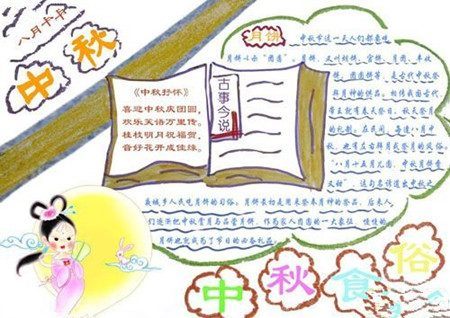 八月十
中秋
《中秋抒怀》
喜迎中秋庆团圆,
欢乐笑语万里传。
桂枝明月祝福贺,
音好花开成佳缘。
古事今说
月饼 中秋节这一天人们都要吃
月饼以示“团圆”。月饼,又叫胡饼、宫饼、月团、丰收
饼、团圆饼等,是古代中秋祭
拜月神的供品。相传我国古代
帝王就有春天祭日、秋天祭月
的礼制。在民间,每逢八月中
秋,也有左右拜月或祭月的风俗。
“八月十五月儿圆,中秋月饼香
又甜”,这句名谚道出中秋之
夜城乡人民吃月饼的习俗。月饼最初是用来祭奉月神的祭品,后来人
们逐渐把中秋赏月与品尝月饼,作为家人团圆的一大象征,慢慢的
月饼也就成为了节日的必备礼品。
中秋食俗